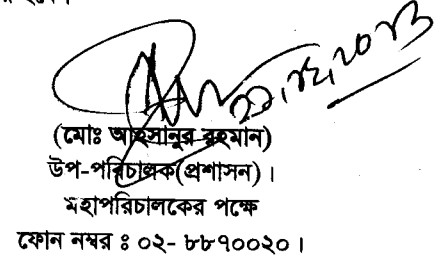 (মোঃ আহসানুর রহমান)
উপ-পরিচালক(প্রশাসন) ।
মহাপরিচালকের পক্ষে
ফোন নম্বর ঃ ০২- ৮৮৭০০২০ ।